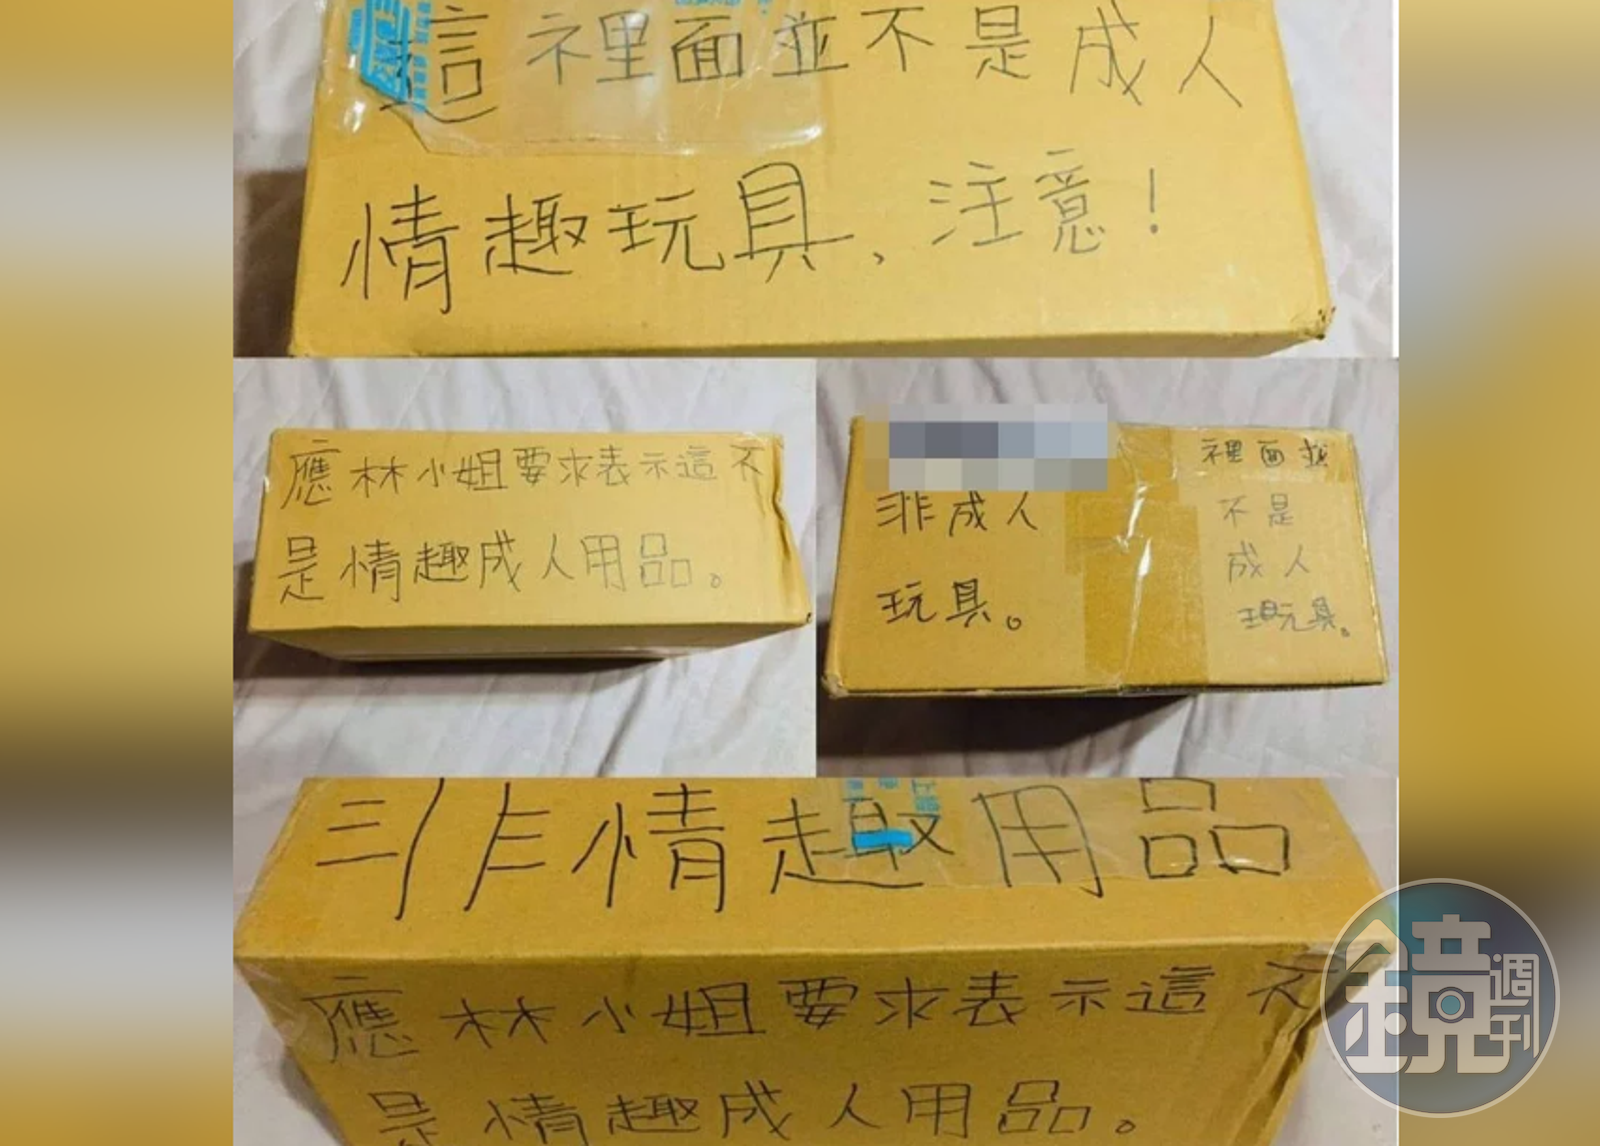 這裡面並不是成人
情趣玩具、注意!
應林小姐要求表示這不
是情趣成人用品。
非成人
玩具。
裡面並
不是
成人
玩具。
非情趣用品
應林小姐要求表示這不
是情趣成人用品。
鏡週刊